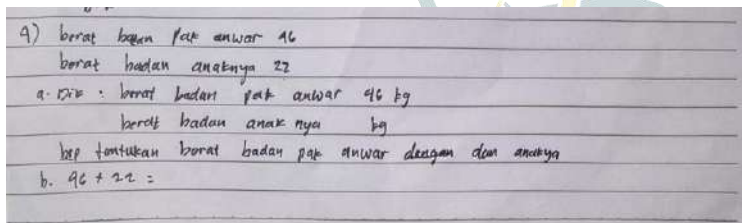 9) berat badan pak anwar 96
berat badan anaknya 22
a. Dik : berat badan pak anwar 96 kg
berat badan anak nya kg
brp tentukan berat badan pak anwar dengan dan anaknya
b. 96 + 22 =